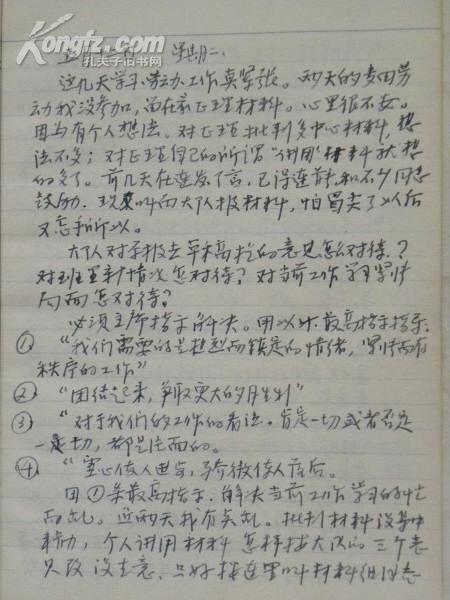 Kongfz.com
孔夫子旧书网
星期二、
这几天学习、劳动、工作真紧张。两天的麦田劳
动我没参加,留在家正理材料。心里很不安。
因为有个人想法。对正理批判多中心材料,想
法不多;对正理自己的所谓“讲用”材料就想
的多了。前几天在连发了言,已得连首长和不少同志
鼓励.现又叫向大队报材料,怕冒尖了以后
又忘乎所以。
大队对于报去草稿的意见怎么对待?
对班里新情况怎对待?对当前工作学习紧张
局面怎对待?
必须主席指示解决。用以下最高指示指导:
① “我们需要的是热烈而镇定的情绪,紧张而有
秩序的工作”
② “团结起来,争取更大的胜利”
③ “对于我们的工作的看法.肯定一切或者否定
一切,都是片面的。
④ “虚心使人进步,骄傲使人落后。
用①条最高指示.解决当前工作学习的忙
而乱。近两天我有点乱。批判材料没集中
精力,个人讲用材料怎样按大队的三个意
见改没主意.只好按连里叫材料